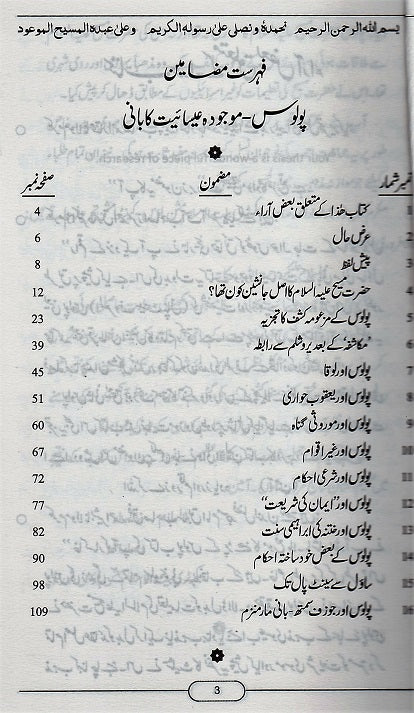 بسم الله الرحمن الرحیم نحمدہ و نصلی علیٰ رسولہ الکریم و علیٰ عبدہ المسیح الموعود
فہرست مضامین
پولوس - موجودہ عیسائیت کا بانی
نمبر شمار مضمون صفحہ نمبر
1 کتاب ھذا کے متعلق بعض آراء 4
2 عرض حال 6
3 پیش لفظ 8
4 حضرت مسیح علیہ السلام کا اصل جانشین کون تھا؟ 12
5 پولوس کے مزعومہ کشف کا تجزیہ 23
6 ’مکاشفہ‘ کے بعد یروشلم سے رابطہ 39
7 پولوس اور لوقا 45
8 پولوس اور یعقوب حواری 51
9 پولوس اور موروثی گناہ 60
10 پولوس اور غیر اقوام 67
11 پولوس اور شرعی احکام 72
12 پولوس اور ’’ایمان کی شریعت‘‘ 77
13 پولوس اور ختنہ کی ابراہیمی سنت 82
14 پولوس کے بعض خود ساختہ احکام 90
15 ساؤل سے سینٹ پال تک 98
16 پولوس اور جوزف سمتھ - بانی مارمنزم 109
3